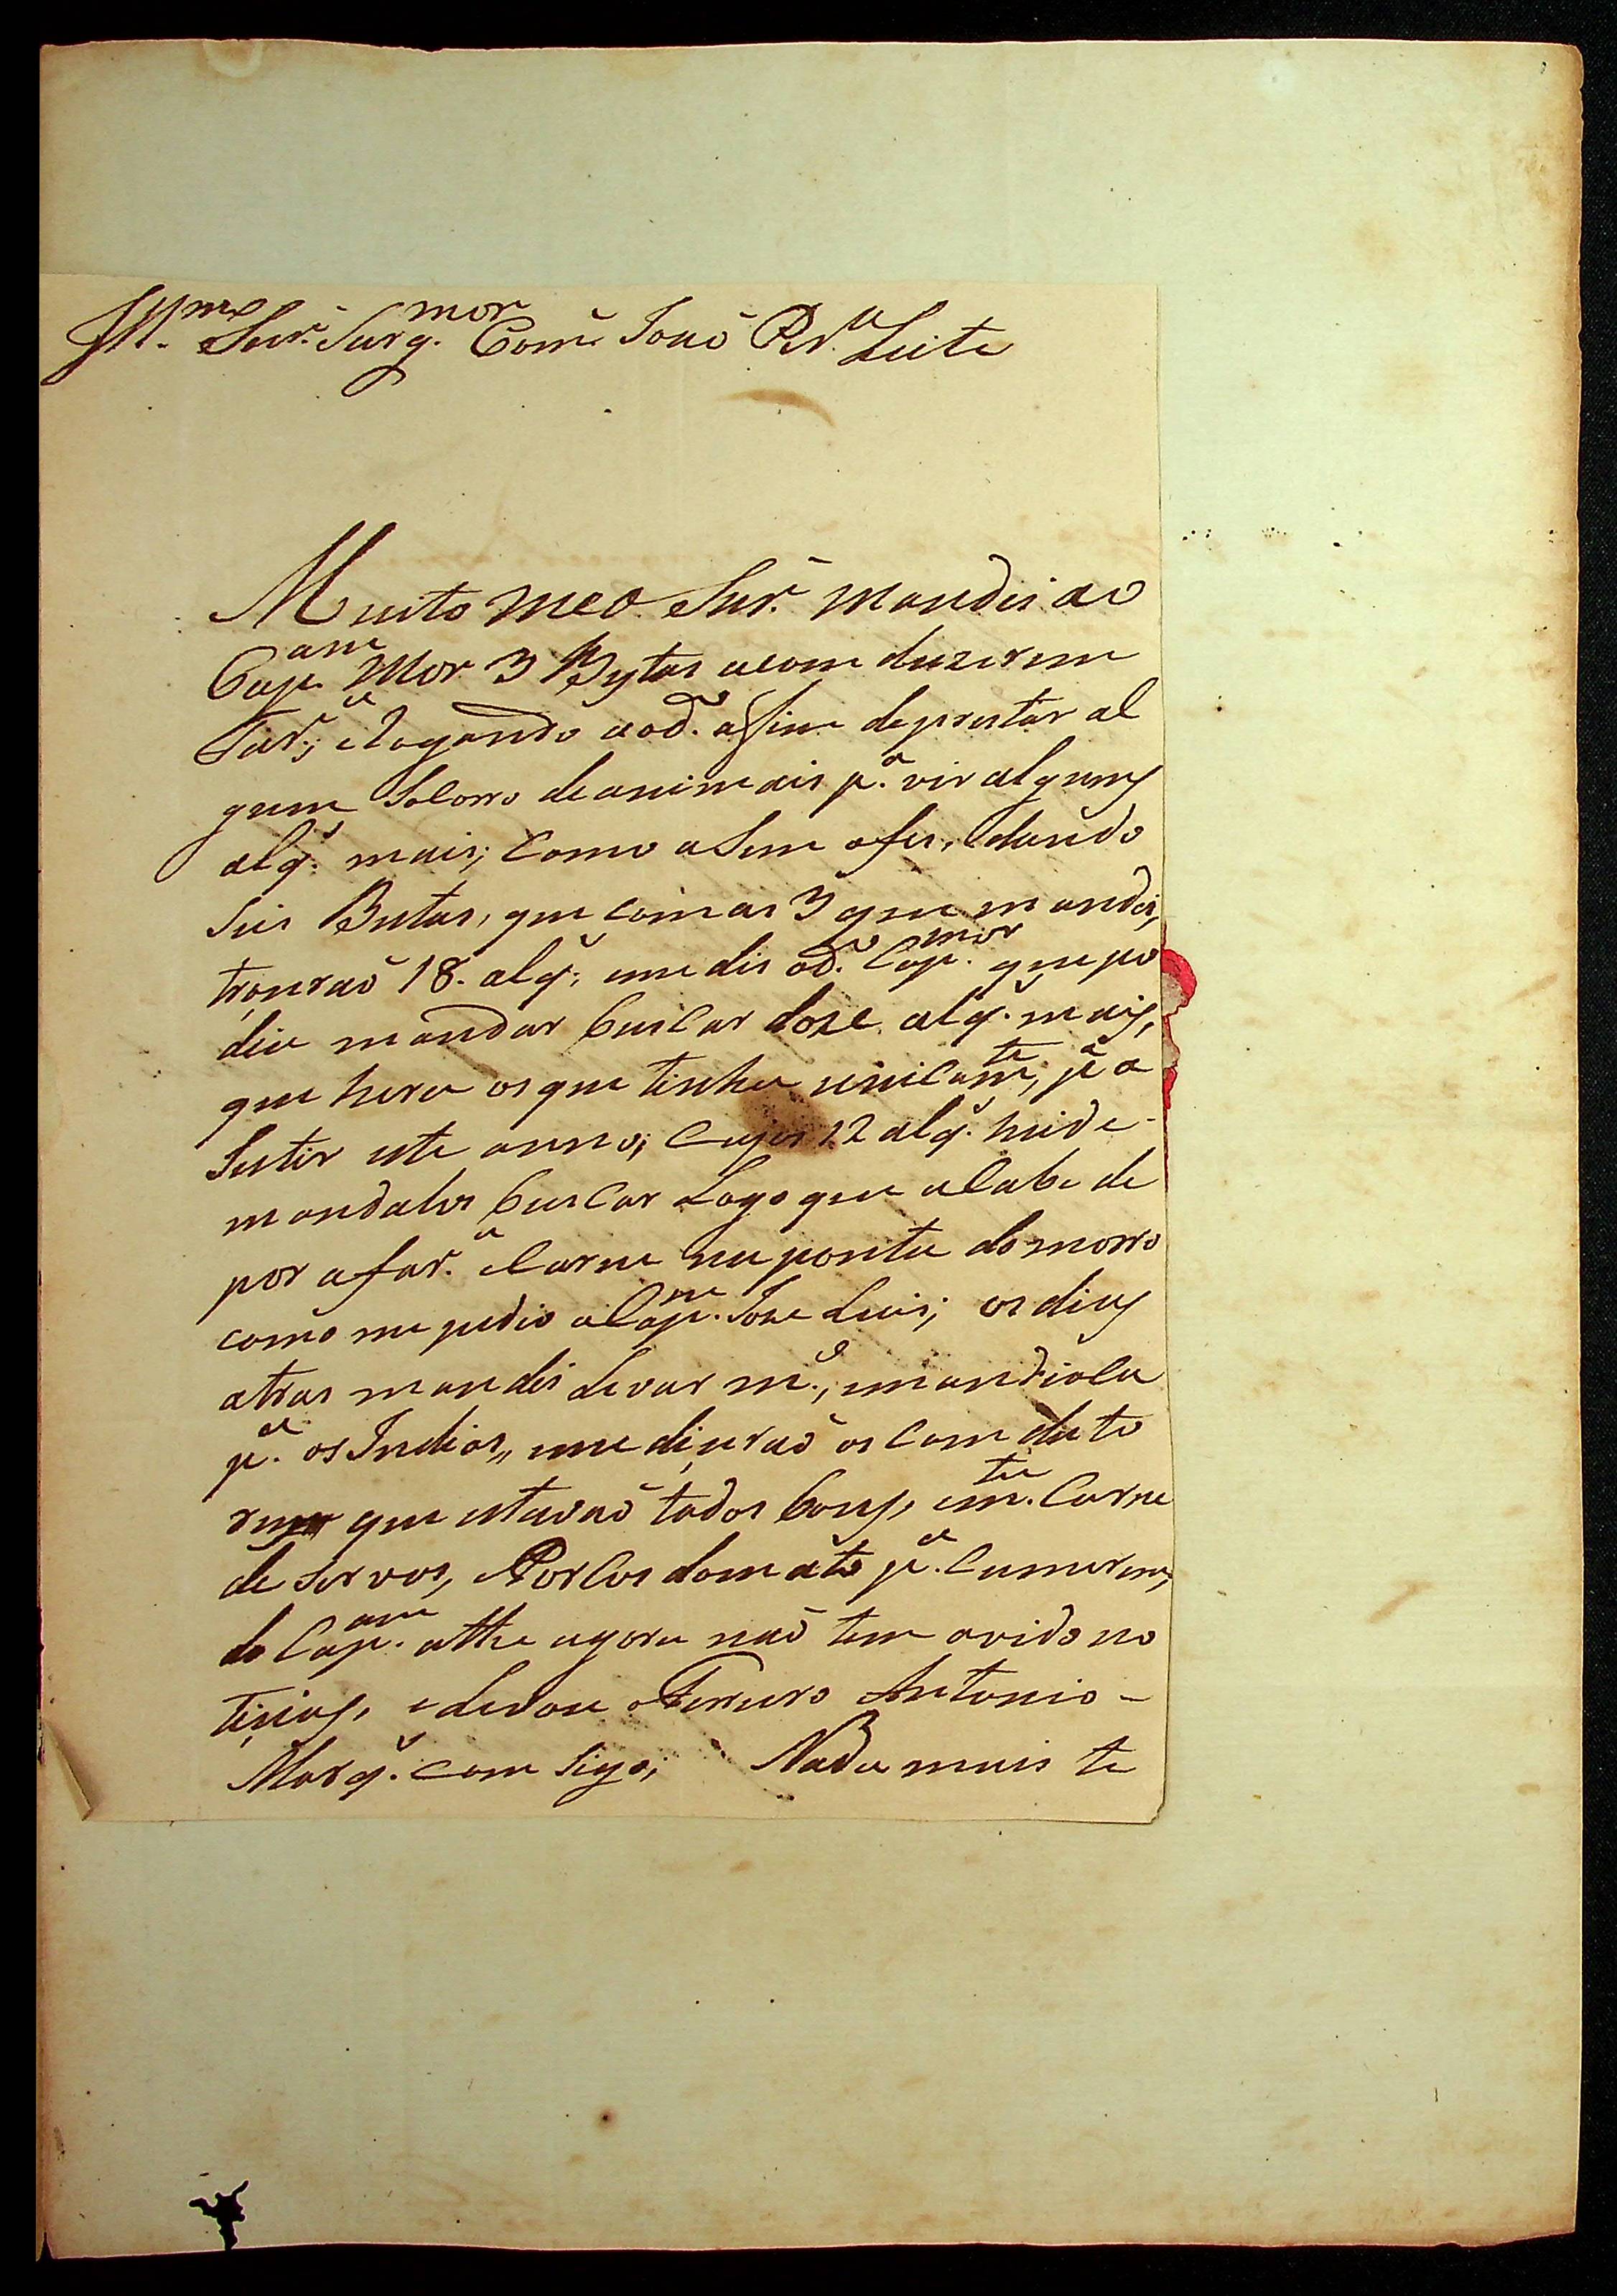 Ill.mo Snr. Sarg. mor Com.e Joaõ Rd.a Leite
Muito meo Snr. mandei ao
Cap.am Mor 3 Bestas acomduzerem
Far.a; eRogando aod.o aSim deprestar al
gum Socorro deanimais p.a vir alguns
alq.s mais; Como aSim ofes, dando
Seis Bestas, que com as 3 que mandei,
trouxeraõ 18. alq.s; eme dis od.o Cap. mor que po
dia mandar buscar doze alq.s mais,
que hera os que tinha unicam.te, p.a a
Sestir este anno; Cujos 12 alq.s heide-
mandalos buscar Logo que acabe de
por afar.a eCarne na ponta do morro
como me pedio oCap.m Joze Luis; os dias
atras mandei Levar m.o, emandioca
p.a os Indios,, eme diçeraõ os Comduto
res que estavaõ todos bons, em.ta Carne
de servos, ePorcos domato p.a Cumerem,
do Cap.am athe agora naõ tem avido no
ticias, eLevou oFerreiro Antonio-
Marq.s com sigo; Nada mais te